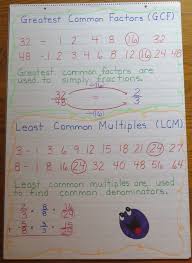 Greatest Common Factors (GCF)
32 - 1 2 4 8 16 32
48 - 1 2 3 4 6 8 12 16 24 48
Greatest common factors are
used to simply fractions.
(÷16)
32/48 = 2/3
(÷16)
Least Common Multiples (LCM)
3 - 1 3 6 9 12 15 18 21 24 27
8 - 1 8 16 24 32 40 48 56 64
Least common multiples are used
to find common denominators.